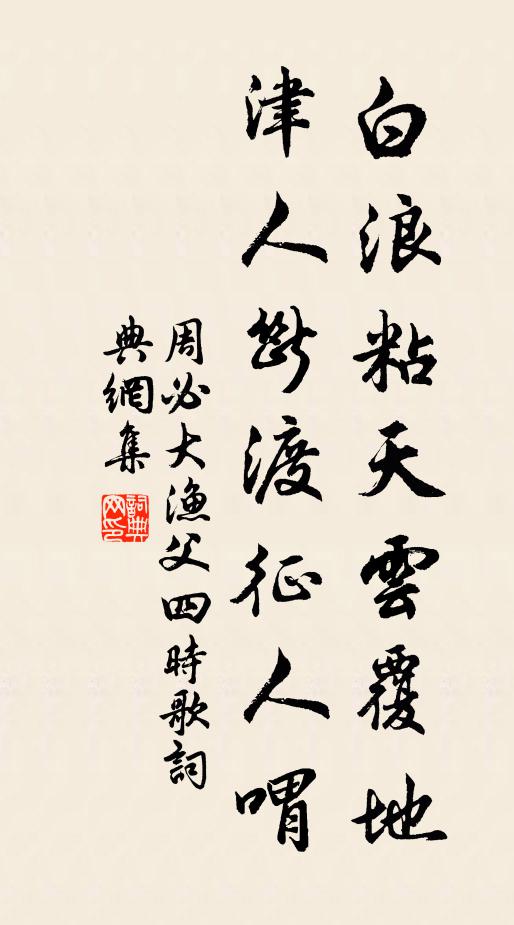 白浪粘天雲覆地
津人斷渡征人喟
周必大漁父四時歌詞
典網集
詞典網印